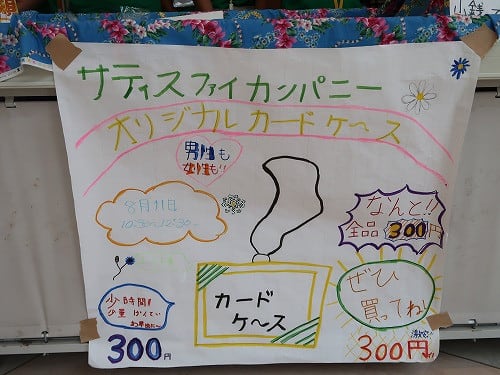 小銭
サティスファイカンパニー
オリジナルカードケース
男性も
女性も!!
8月11日
10:30~12:30~
なんと!!
全品300円
少時間!!
少量 げんてい
カード
ケース
ぜひ
買ってね!
300円
激安
300円!!